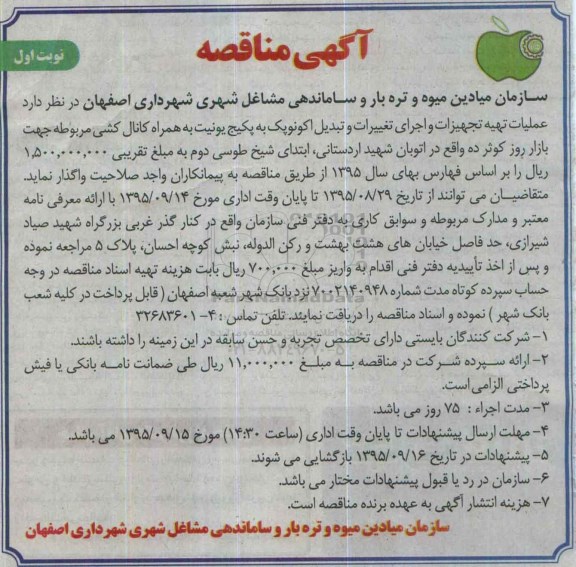 آگهی مناقصه
نوبت اول
سـازمان میادین میوه و تره بار و سـاماندهی مشاغل شهری شهرداری اصفهان در نظر دارد
عملیات تهیه تجهیزات و اجرای تغییرات و تبدیل اکونوپک به پکیج یونیت به همراه کانال کشی مربوطه جهت
بازار روز کوثر ده واقع در اتوبان شهید اردستانی، ابتدای شیخ طوسی دوم به مبلغ تقریبی ۱,۵۰۰,۰۰۰,۰۰۰
ریال را بر اساس فهارس بهای سال ۱۳۹۵ از طریق مناقصه به پیمانکاران واجد صلاحیت واگذار نماید.
متقاضیـان می توانند از تاریخ ۱۳۹۵/۰۸/۲۹ تا پایان وقت اداری مورخ ۱۳۹۵/۰۹/۱۴ با ارائه معرفی نامه
معتبر و مدارک مربوطه و سوابق کاری به دفتر فنی سازمان واقع در کنار گذر غربی بزرگراه شهید صیاد
شیرازی، حد فاصل خیابان های هشت بهشت و رکن الدوله، نبش کوچه احسان، پلاک ۵ مراجعه نموده
و پس از اخذ تأییدیه دفتر فنی اقدام به واریز مبلغ ۷۰۰,۰۰۰ ریال بابت هزینه تهیه اسناد مناقصه در وجه
حساب سپرده کوتاه مدت شماره ۷۰۰۲۱۴۰۹۴۸ نزد بانک شهر شعبه اصفهان ( قابل پرداخت در کلیه شعب
بانک شهر ) نموده و اسناد مناقصه را دریافت نمایند. تلفن تماس : ۴- ۳۲۶۸۳۶۰۱
۱- شرکت کنندگان بایستی دارای تخصص تجربه و حسن سابقه در این زمینه را داشته باشند.
۲- ارائه سپرده شـرکت در مناقصه بـه مبلـغ ۱۱,۰۰۰,۰۰۰ ریال طی ضمانت نامـه بانکی یا فیش
پرداختی الزامی است.
۳- مدت اجراء : ۷۵ روز می باشد.
۴- مهلت ارسال پیشنهادات تا پایان وقت اداری (ساعت ۱۴:۳۰) مورخ ۱۳۹۵/۰۹/۱۵ می باشد.
۵- پیشنهادات در تاریخ ۱۳۹۵/۰۹/۱۶ بازگشایی می شوند.
۶- سازمان در رد یا قبول پیشنهادات مختار می باشد.
۷- هزینه انتشار آگهی به عهده برنده مناقصه است.
سازمان میادین میوه و تره بار و ساماندهی مشاغل شهری شهرداری اصفهان